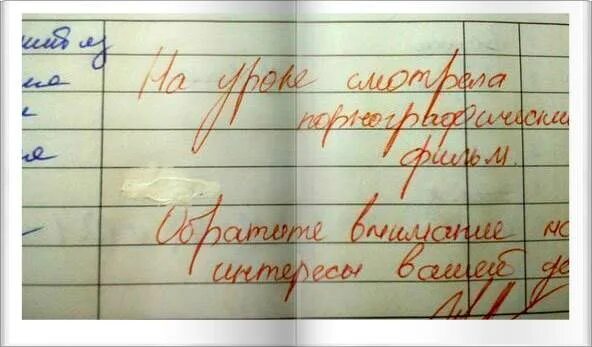 На уроке смотрела
порнографический
фильм.
Обратите внимание на
интересы вашей